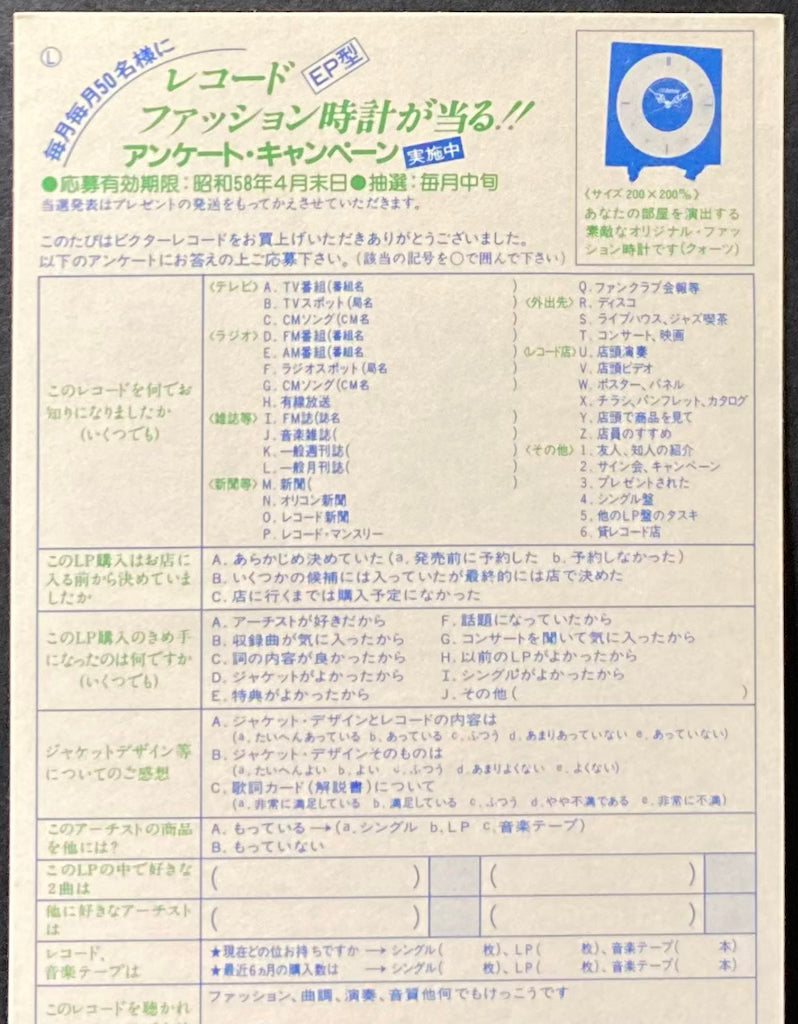 Ⓛ
毎月毎月50名様に
レコード EP型
ファッション時計が当る!!
アンケート・キャンペーン 実施中
●応募有効期限：昭和58年4月末日●抽選：毎月中旬
当選発表はプレゼントの発送をもってかえさせていただきます。
〈サイズ200×200㎜〉
あなたの部屋を演出する
素敵なオリジナル・ファッ
ション時計です(クォーツ)
このたびはビクターレコードをお買上げいただきありがとうございました。
以下のアンケートにお答えの上ご応募下さい。(該当の記号を○で囲んで下さい)
このレコードを何でお
知りになりましたか
(いくつでも)
〈テレビ〉A. TV番組(番組名 )
B. TVスポット(局名 )
C. CMソング(CM名 )
〈ラジオ〉D. FM番組(番組名 )
E. AM番組(番組名 )
F. ラジオスポット(局名 )
G. CMソング(CM名 )
H. 有線放送
〈雑誌等〉I. FM誌(誌名 )
J. 音楽雑誌( )
K. 一般週刊誌( )
L. 一般月刊誌( )
〈新聞等〉M. 新聞( )
N. オリコン新聞
O. レコード新聞
P. レコード・マンスリー
Q. ファンクラブ会報等
〈外出先〉R. ディスコ
S. ライブハウス、ジャズ喫茶
T. コンサート、映画
〈レコード店〉U. 店頭演奏
V. 店頭ビデオ
W. ポスター、パネル
X. チラシ、パンフレット、カタログ
Y. 店頭で商品を見て
Z. 店員のすすめ
〈その他〉1. 友人、知人の紹介
2. サイン会、キャンペーン
3. プレゼントされた
4. シングル盤
5. 他のLP盤のタスキ
6. 貸レコード店
このLP購入はお店に
入る前から決めていま
したか
A. あらかじめ決めていた(a. 発売前に予約した b. 予約しなかった)
B. いくつかの候補には入っていたが最終的には店で決めた
C. 店に行くまでは購入予定になかった
このLP購入のきめ手
になったのは何ですか
(いくつでも)
A. アーチストが好きだから
B. 収録曲が気に入ったから
C. 詞の内容が良かったから
D. ジャケットがよかったから
E. 特典がよかったから
F. 話題になっていたから
G. コンサートを聞いて気に入ったから
H. 以前のLPがよかったから
I. シングルがよかったから
J. その他( )
ジャケットデザイン等
についてのご感想
A. ジャケット・デザインとレコードの内容は
(a. たいへんあっている b. あっている c. ふつう d. あまりあっていない e. あっていない)
B. ジャケット・デザインそのものは
(a. たいへんよい b. よい c. ふつう d. あまりよくない e. よくない)
C. 歌詞カード(解説書)について
(a. 非常に満足している b. 満足している c. ふつう d. やや不満である e. 非常に不満)
このアーチストの商品
を他には?
A. もっている→(a. シングル b. LP c. 音楽テープ)
B. もっていない
このLPの中で好きな
2曲は
( ) ( )
他に好きなアーチスト
は
( ) ( )
レコード、
音楽テープは
★現在どの位お持ちですか → シングル( 枚)、LP( 枚)、音楽テープ( 本)
★最近6ヵ月の購入数は → シングル( 枚)、LP( 枚)、音楽テープ( 本)
このレコードを聴かれ
ファッション、曲調、演奏、音質他何でもけっこうです